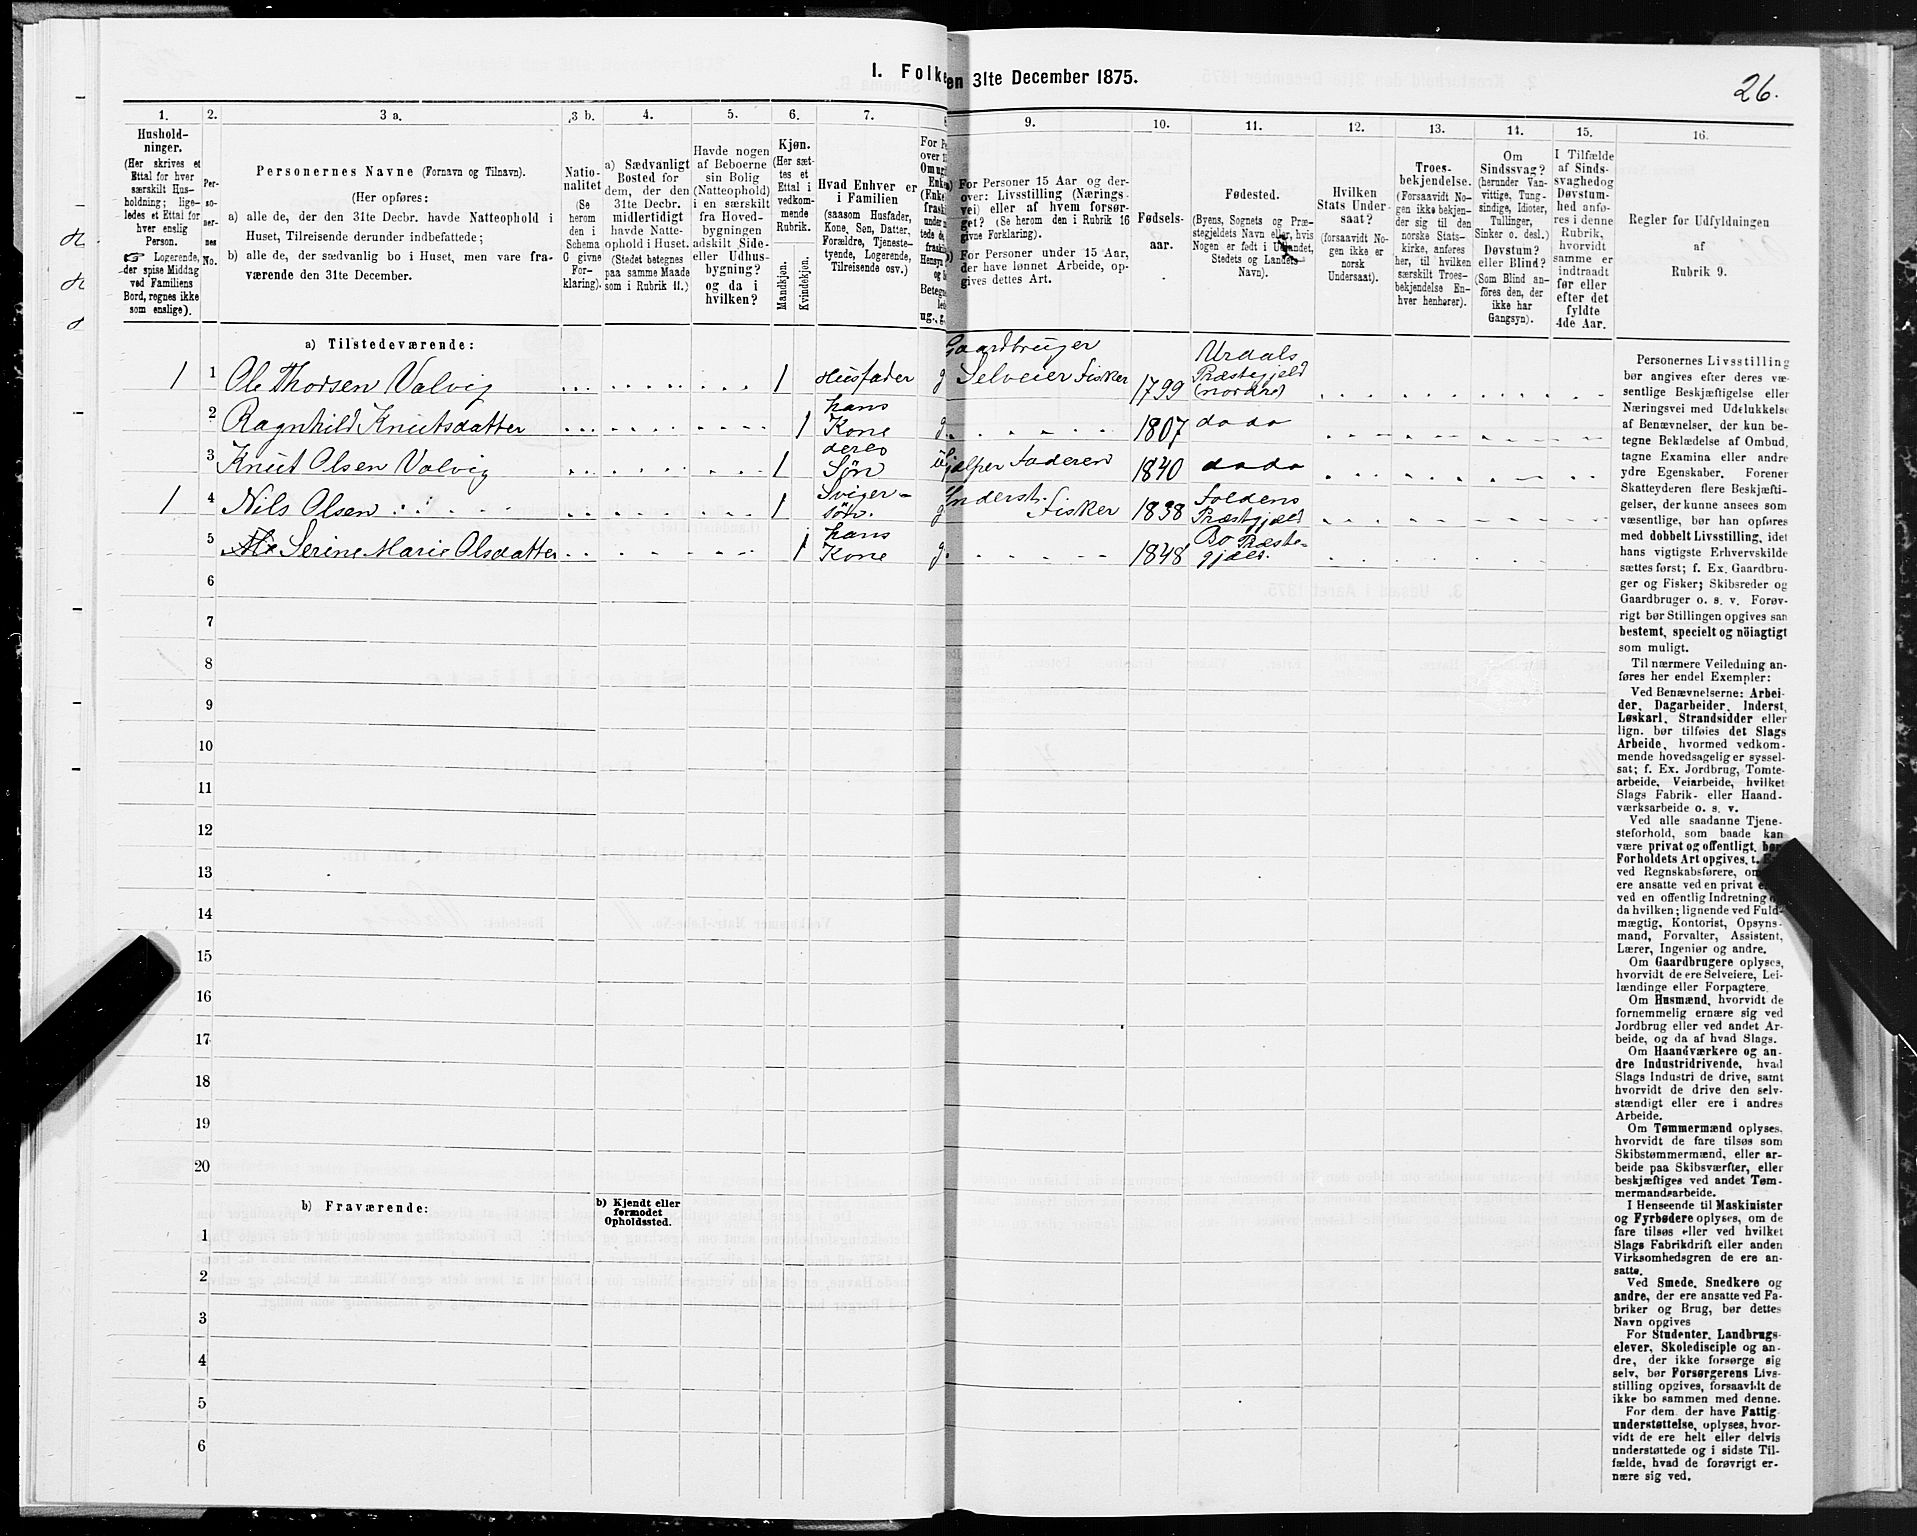 I. Folke
en 31te December 1875.
26.
1.
2.
3 a.
3 b.
4.
5.
6.
7.
8
9.
10.
11.
12.
13.
14.
15.
16.
Hushold-
ninger.
(Her skrives et
Ettal for hver
særskilt Hus-
holdning; lige-
ledes et Ettal for
hver enslig
Person.
☞ Logerende,
der spise Middag
ved Familiens
Bord, regnes ikke
som enslige).
Per-
so-
ner-
nes
No.
Personernes Navne (Fornavn og Tilnavn).
(Her opføres:
a) alle de, der den 31te Decbr. havde Natteophold i
Huset, Tilreisende derunder indbefattede;
b) alle de, der sædvanlig bo i Huset, men vare fra-
værende den 31te December.
Natio-
nalitet
(Se
herom
den i
Schema
C givne
For-
klaring).
a) Sædvanligt
Bosted for
dem, der den
31te Decbr.
midlertidigt
havde Natte-
ophold i Huset.
(Stedet betegnes
paa samme Maade
som i Rubrik 11.)
Havde nogen
af Beboerne
sin Bolig
(Natteophold)
i en særskilt
fra Hoved-
bygningen
adskilt Side-
eller Udhus-
bygning?
og da i
hvilken?
Kjøn.
(Her sæt-
tes et
Ettal i
vedkom-
mende
Rubrik.
Mandkjøn.
Kvindekjøn.
Hvad Enhver er
i Familien
(saasom Husfader,
Kone, Søn, Datter,
Forældre, Tjeneste-
tyende, Logerende,
Tilreisende osv.)
For Personer 15 Aar og der-
over: Livsstilling (Nærings-
vei) eller af hvem forsør-
get? (Se herom den i Rubrik 16
givne Forklaring).
For Personer under 15 Aar,
der have lønnet Arbeide, op-
gives dettes Art.
Fødsels-
aar.
Fødested.
(Byens, Sognets og Præ-
stegjeldets Navn eller, hvis
Nogen er født i Udlandet,
Stedets og Landets
Navn).
Hvilken
Stats Under-
saat?
(forsaavidt No-
gen ikke er
norsk
Undersaat).
Troes-
bekjendelse.
(Forsaavidt No-
gen ikke bekjen-
der sig til den
norske Stats-
kirke, anføres
her, til hvilken
særskilt Troes-
bekjendelse En-
hver henhører).
Om
Sindssvag?
(herunder Van-
vittige, Tung-
sindige, Idioter,
Tullinger,
Sinker o. desl.)
Døvstum?
eller Blind?
(Som Blind an-
føres den, der
ikke har
Gangsyn).
I Tilfælde
af Sinds-
svaghed og
Døvstum-
hed anfø-
res i denne
Rubrik,
hvorvidt
samme er
indtraadt
før eller
efter det
fyldte
4de Aar.
Regler for Udfyldningen
af
Rubrik 9.
a) Tilstedeværende:
1 1 Ole Thorsen Valvig 1 Husfader g Gaardbruger Selveier Fisker 1799 Urdals Præstegjeld (nordre)
2 Ragnhild Knutsdatter 1 hans Kone g. 1807 do do
3 Knut Olsen Valvig 1 deres Søn u hjelper Faderen 1840 do do
1 4 Nils Olsen 1 Sviger-søn. g Inderst. Fisker 1838 Foldens Præstgjeld
5 Serine Marie Olsdatter 1 hans Kone g. 1848 Bo Præste-gjeld.
6
7
8
9
10
11
12
13
14
15
16
17
18
19
20
b) Fraværende:
b) Kjendt eller
formodet
Opholdssted.
1
2
3
4
5
6
Personernes Livsstilling
bør angives efter deres væ-
sentlige Beskjæftigelse eller
Næringsvei med Udelukkelse
af Benævnelser, der kun be-
tegne Beklædelse af Ombud,
tagne Examina eller andre
ydre Egenskaber. Forener
Skatteyderen flere Beskjæfti-
gelser, der kunne ansees som
væsentlige, bør han opføres
med dobbelt Livsstilling, idet
hans vigtigste Erhvervskilde
sættes først; f. Ex. Gaardbru-
ger og Fisker; Skibsreder og
Gaardbruger o. s. v. Forøv-
rigt bør Stillingen opgives saa
bestemt, specielt og nöiagtigt
som muligt.
Til nærmere Veiledning an-
føres her endel Exempler:
Ved Benævnelserne: Arbei-
der, Dagarbeider, Inderst,
Løskarl, Strandsidder eller
lign. bør tilføies det Slags
Arbeide, hvormed vedkom-
mende hovedsagelig er syssel-
sat; f. Ex. Jordbrug, Tomte-
arbeide, Veiarbeide, hvilket
Slags Fabrik- eller Haand-
værksarbeide o. s. v.
Ved alle saadanne Tjene-
steforhold, som baade kan
være privat og offentligt, bør
Forholdets Art opgives, t. E
ved Regnskabsførere, om
ere ansatte ved en privat e
ved en offentlig Indretning o
da hvilken; lignende ved Fuld-
mægtig, Kontorist, Opsyns-
mand, Forvalter, Assistent,
Lærer, Ingeniør og andre.
Om Gaardbrugere oplyses,
hvorvidt de ere Selveiere, Lei-
lændinge eller Forpagtere.
Om Husmænd, hvorvidt de
fornemmelig ernære sig ved
Jordbrug eller ved andet Ar-
beide, og da af hvad Slags.
Om Haandværkere og an-
dre Industridrivende, hvad
Slags Industri de drive, samt
hvorvidt de drive den selv-
stændigt eller ere i andres
Arbeide.
Om Tømmermænd oplyses,
hvorvidt de fare tilsøs som
Skibstømmermænd, eller ar-
beide paa Skibsværfter, eller
beskjæftiges ved andet Tøm-
mermandsarbeide.
I Henseende til Maskinister
og Fyrbødere oplyses, om de
fare tilsøs eller ved hvilket
Slags Fabrikdrift eller anden
Virksomhedsgren de ere an-
satte.
Ved Smede, Snedkere og
andre, der ere ansatte ved Fa-
briker og Brug, bør dettes
Navn opgives
For Studenter, Landbrugs-
elever, Skoledisciple og an-
dre, der ikke forsørge sig
selv, bør Forsørgerens Livs-
stilling opgives, forsaavidt de
ikke bo sammen med denne.
For dem, der have Fattig-
understøttelse, oplyses, hvor-
vidt de ere helt eller delvis
understøttede og i sidste Til-
fælde, hvad de forøvrigt er-
nære sig ved.